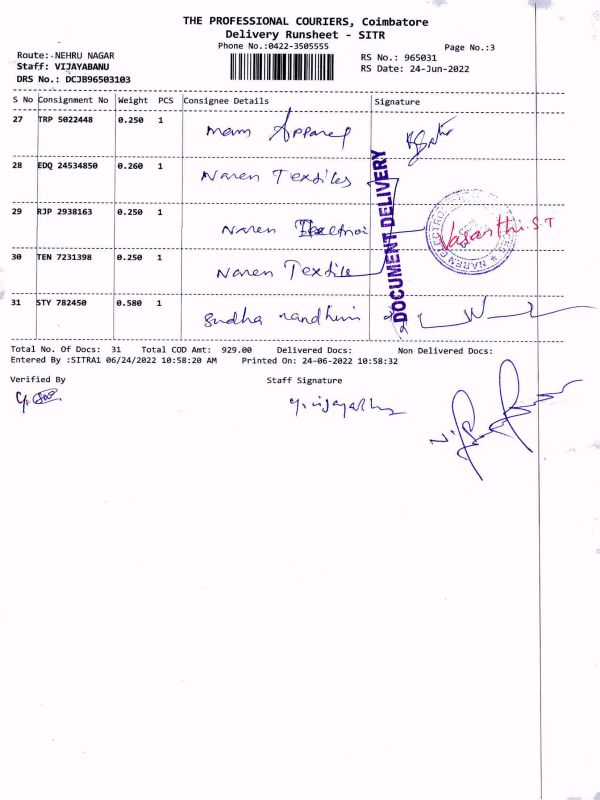 THE PROFESSIONAL COURIERS, Coimbatore
Delivery Runsheet - SITR
Phone No.:0422-3505555
Page No.:3
Route: NEHRU NAGAR
Staff: VIJAYABANU
DRS No.: DCJB96503103
RS No.: 965031
RS Date: 24-Jun-2022
S No Consignment No Weight PCS Consignee Details Signature
27 TRP 5022448 0.250 1 Apparel
28 EDQ 24534850 0.260 1 Naren Textiles
29 RJP 2938163 0.250 1 Naren
30 TEN 7231398 0.250 1 Naren Textile
31 STY 782450 0.580 1 Sudha nandhini
DOCUMENT DELIVERY
NAREN ELECTRO
Vasanthi. S.T
Total No. Of Docs: 31 Total COD Amt: 929.00 Delivered Docs: Non Delivered Docs:
Entered By :SITRA1 06/24/2022 10:58:20 AM Printed On: 24-06-2022 10:58:32
Verified By Staff Signature